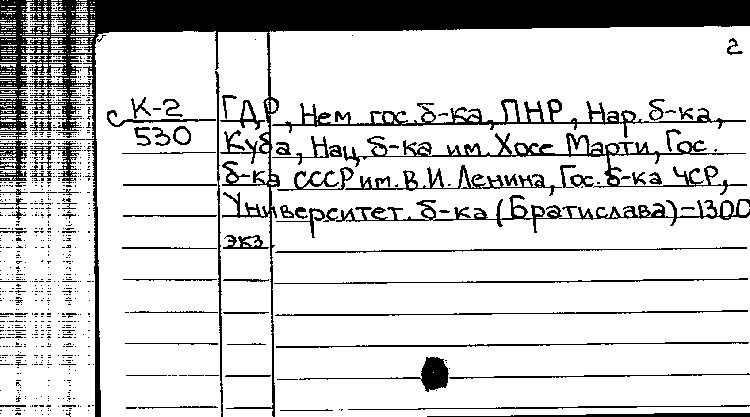 2
с К-2
530
ГДР, Нем. гос. б-ка, ПНР, Нар. б-ка,
Куба, Нац. б-ка им. Хосе Марти, Гос.
б-ка СССР им. В.И. Ленина, Гос. б-ка ЧСР,
Университет. б-ка (Братислава)-1300
экз.